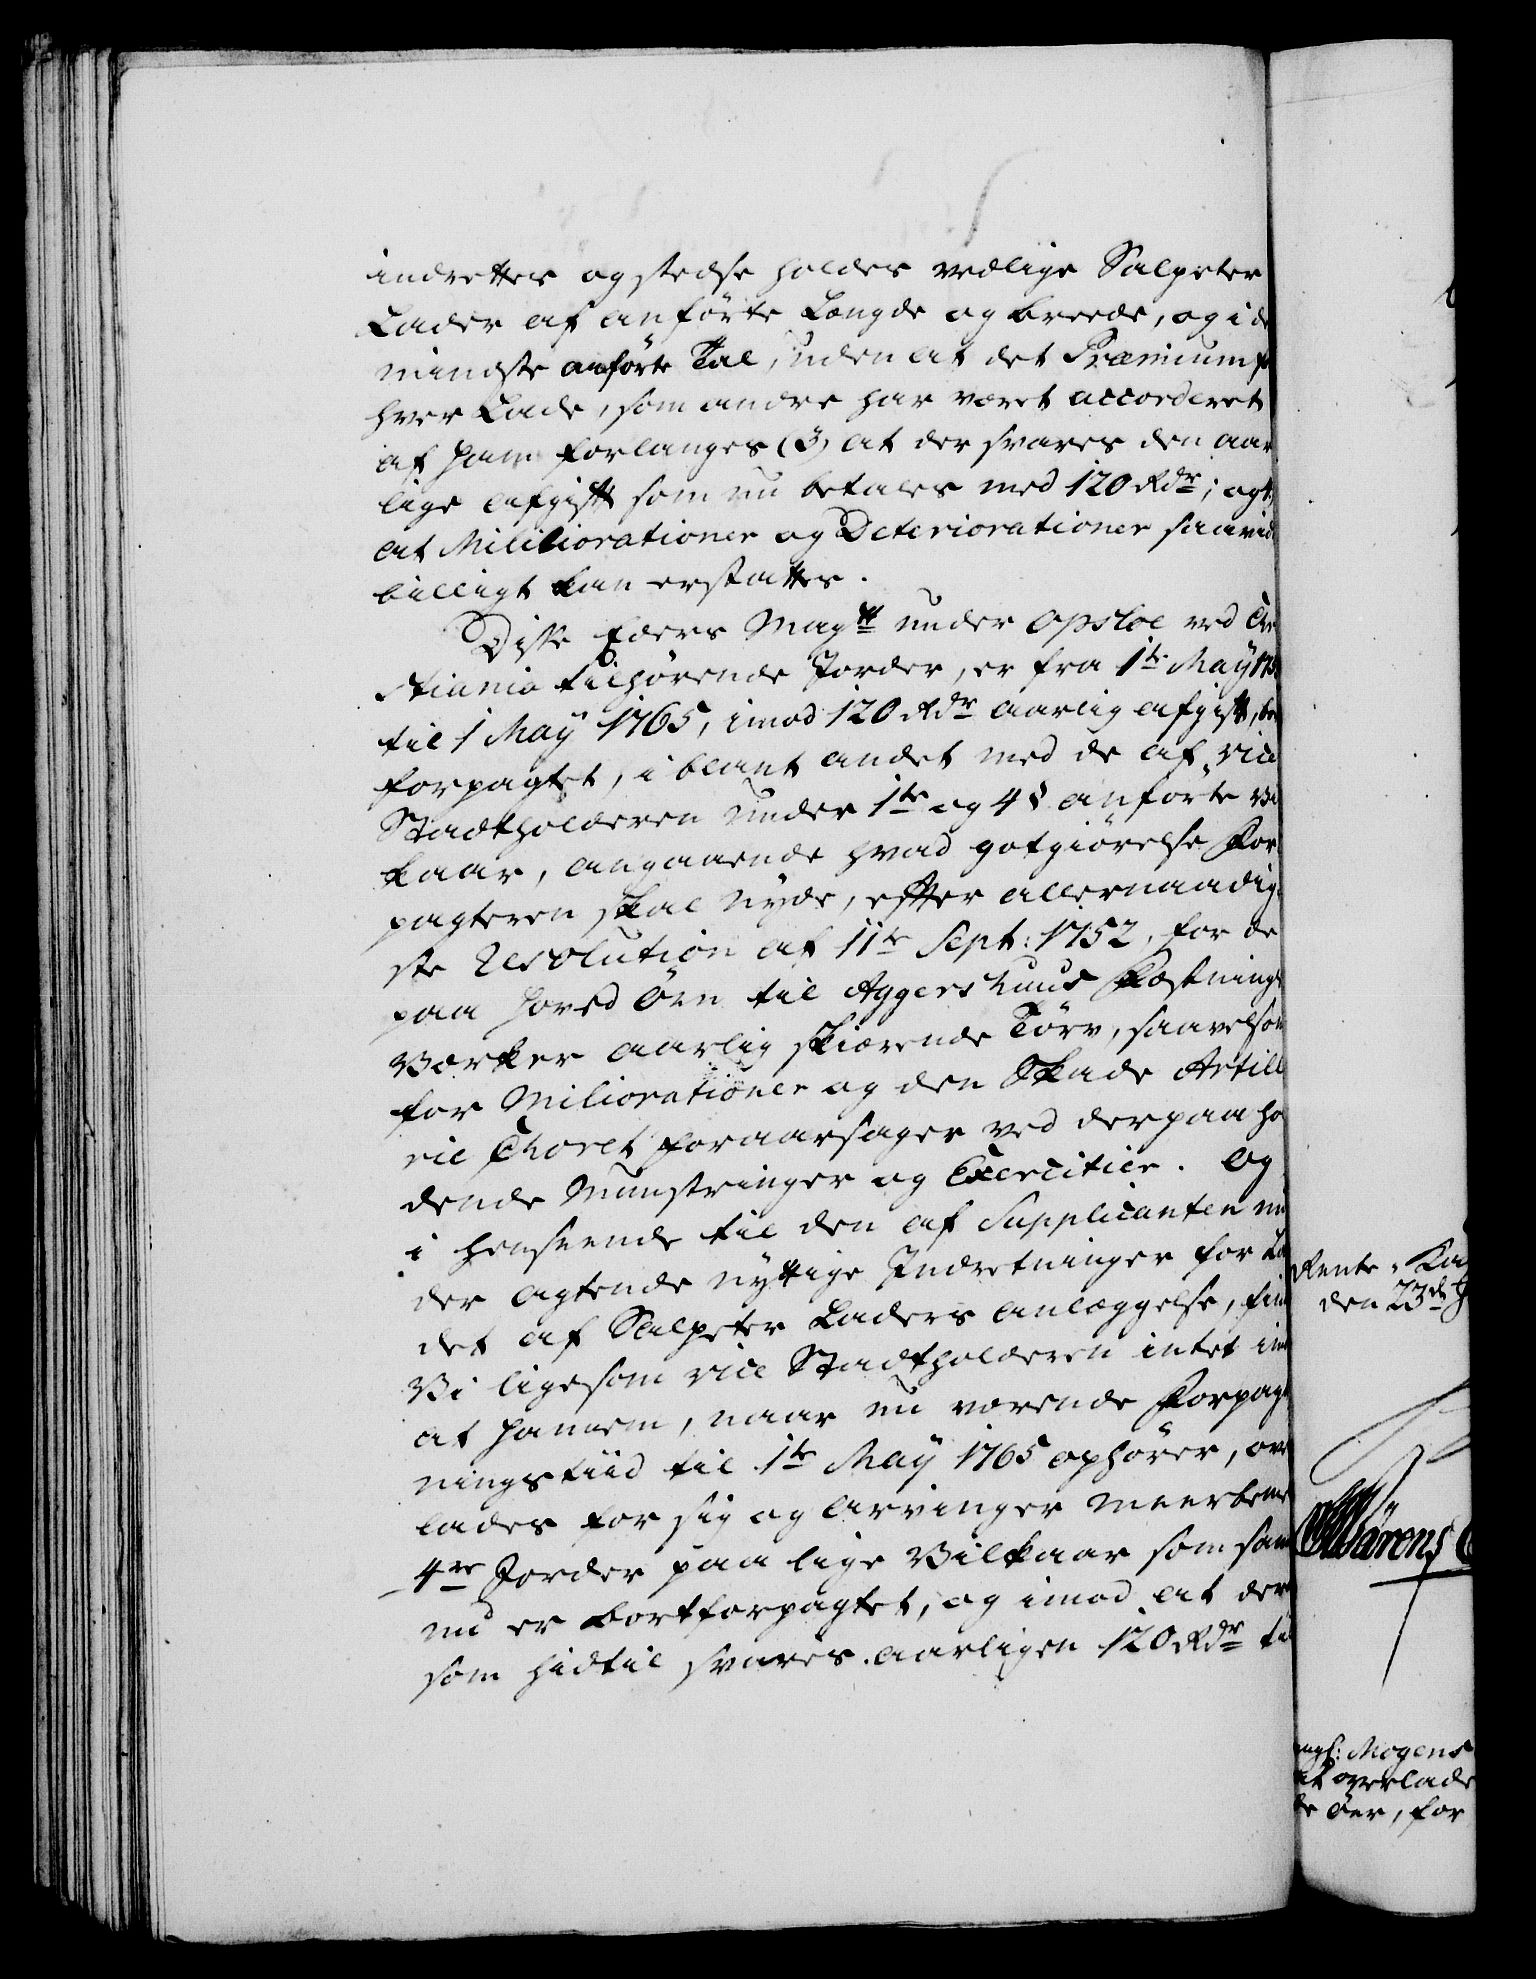 indrettes og stedse holdes vedlige Salpeter
Lader af anførte Længde og breede, og i de
mindste anførte Tal, uden at det Præmium f
hver Lade, som andre har været accorderet
af ham forlanges (3) at der svares den aar
lige afgift som nu betales med 120 Rdr; og 4
at Mililiorationer og Deteriorationer saavidt
billigt kan erstattes.
Disse Eders Maytt under Opsloe ved Chr
stiania tilhørende Jorder, er fra 1te Maÿ 175
til 1 Maÿ 1765, imod 120 Rdr aarlig afgift, bort
forpagtet, i blant andet med de af vice
Stadtholderen under 1te og 4§ anførte Vil
kaar, angaaende hvad gotgiørelse For
pagteren skal nyde, effter allernaadig
ste Resolution af 11te Sept: 1752, for de
paa Hoved Øen til Aggershuus Fæstnings
Værker aarlig skiærende Tørv, saavelsom
for Miliorationer og den Skade Artille
rie Choret foraarsager ved derpaa hol
dende Munstringer og Exercitier. Og
i henseende til den af Supplicanten un
der agtende nyttige Indretninger for Lan
det af Salpeter Laders anlæggelse, finde
Vi ligesom vice Stadtholderen intet imod
at hannem, naar nu værende Forpagt
ningstiid til 1te Maÿ 1765 ophører, over
lades for sig og arvinger meerbemte
4re Jorder paa lige Vilkaar som samme
nu er bortforpagtet, og imod at der
som hidtil svares aarligen 120 Rdr til
Rente-Ka
den 23de J
Wärens
Mogens
at overlade
de Øer, for